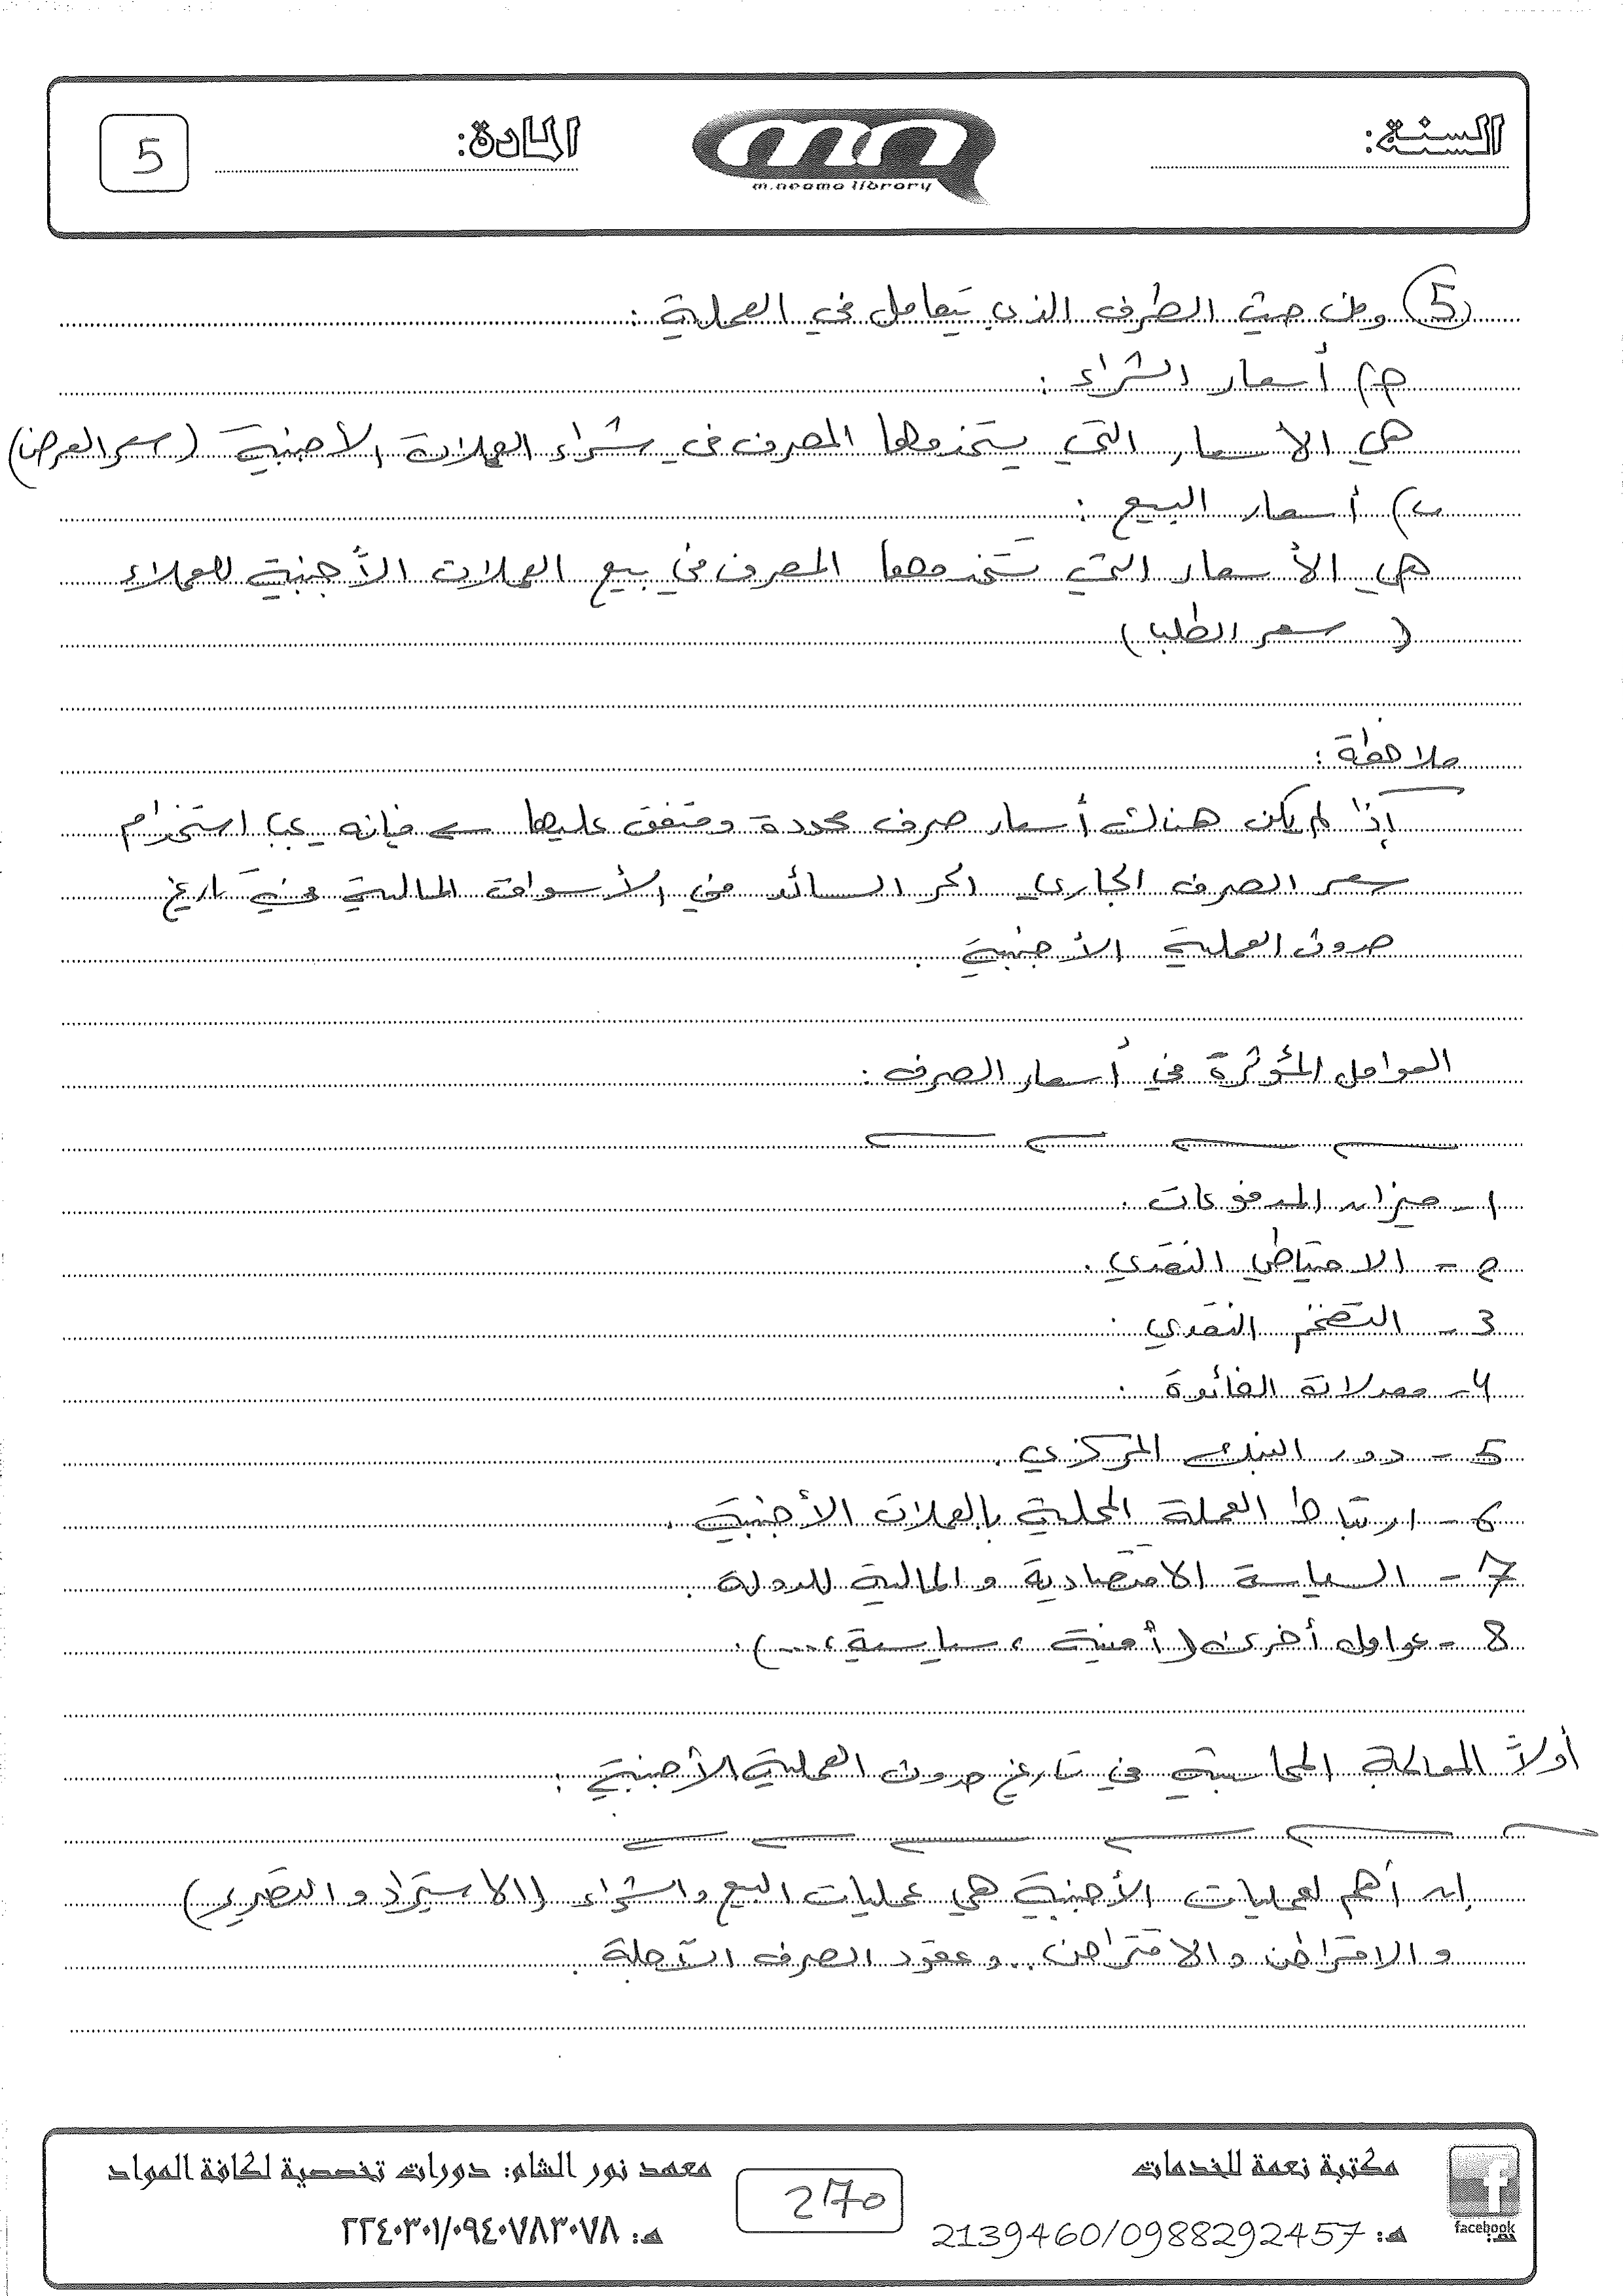 السنة:
المادة:
5
m.neama library
5 ومن حيث الطرف الذي يتعامل في العملية :
أسعار الشراء :
هي الأسعار التي يستخدمها المصرف في شراء العملات الأجنبية (سعر العرض)
ب) أسعار البيع :
هي الأسعار التي تستخدمها المصرف في بيع العملات الأجنبية للعملاء
(سعر الطلب)
ملاحظة :
إذا لم يكن هناك أسعار صرف محددة ومتفق عليها فإنه يجب استخدام
سعر الصرف الجاري الحر السائد في الأسواق المالية في تاريخ
حدوث العملية الأجنبية .
العوامل المؤثرة في أسعار الصرف :
1- ميزان المدفوعات .
2- الاحتياطي النقدي .
3- التضخم النقدي .
4- معدلات الفائدة .
5- دور البنك المركزي .
6- ارتباط العملة المحلية بالعملات الأجنبية .
7- السياسة الاقتصادية و المالية للدولة .
8- عوامل أخرى (أمنية ، سياسية ، ...) .
أولاً المعالجة المحاسبية في تاريخ حدوث العملية الأجنبية :
إن أهم لعمليات الأجنبية هي عمليات البيع والشراء (الاستيراد و التصدير)
و الاقتراض و الاقتراض .. و عقود الصرف الآجلة .
facebook
مكتبة نعمة للخدمات
هـ: 2139460/0988292457
270
معهد نور الشام: دورات تخصصية لكافة المواد
هـ: ٢٢٤٠٣٠١/٠٩٤٠٧٨٣٠٧٨